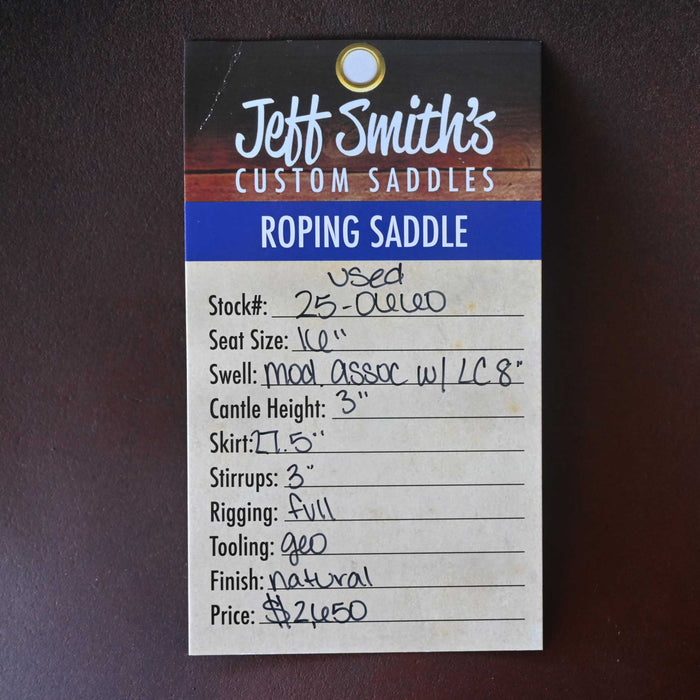 Jeff Smith's
CUSTOM SADDLES
ROPING SADDLE
used
Stock#: 25-0660
Seat Size: 16"
Swell: mod. assoc w/ LC 8"
Cantle Height: 3"
Skirt: 27.5"
Stirrups: 3"
Rigging: full
Tooling: geo
Finish: natural
Price: $2,650